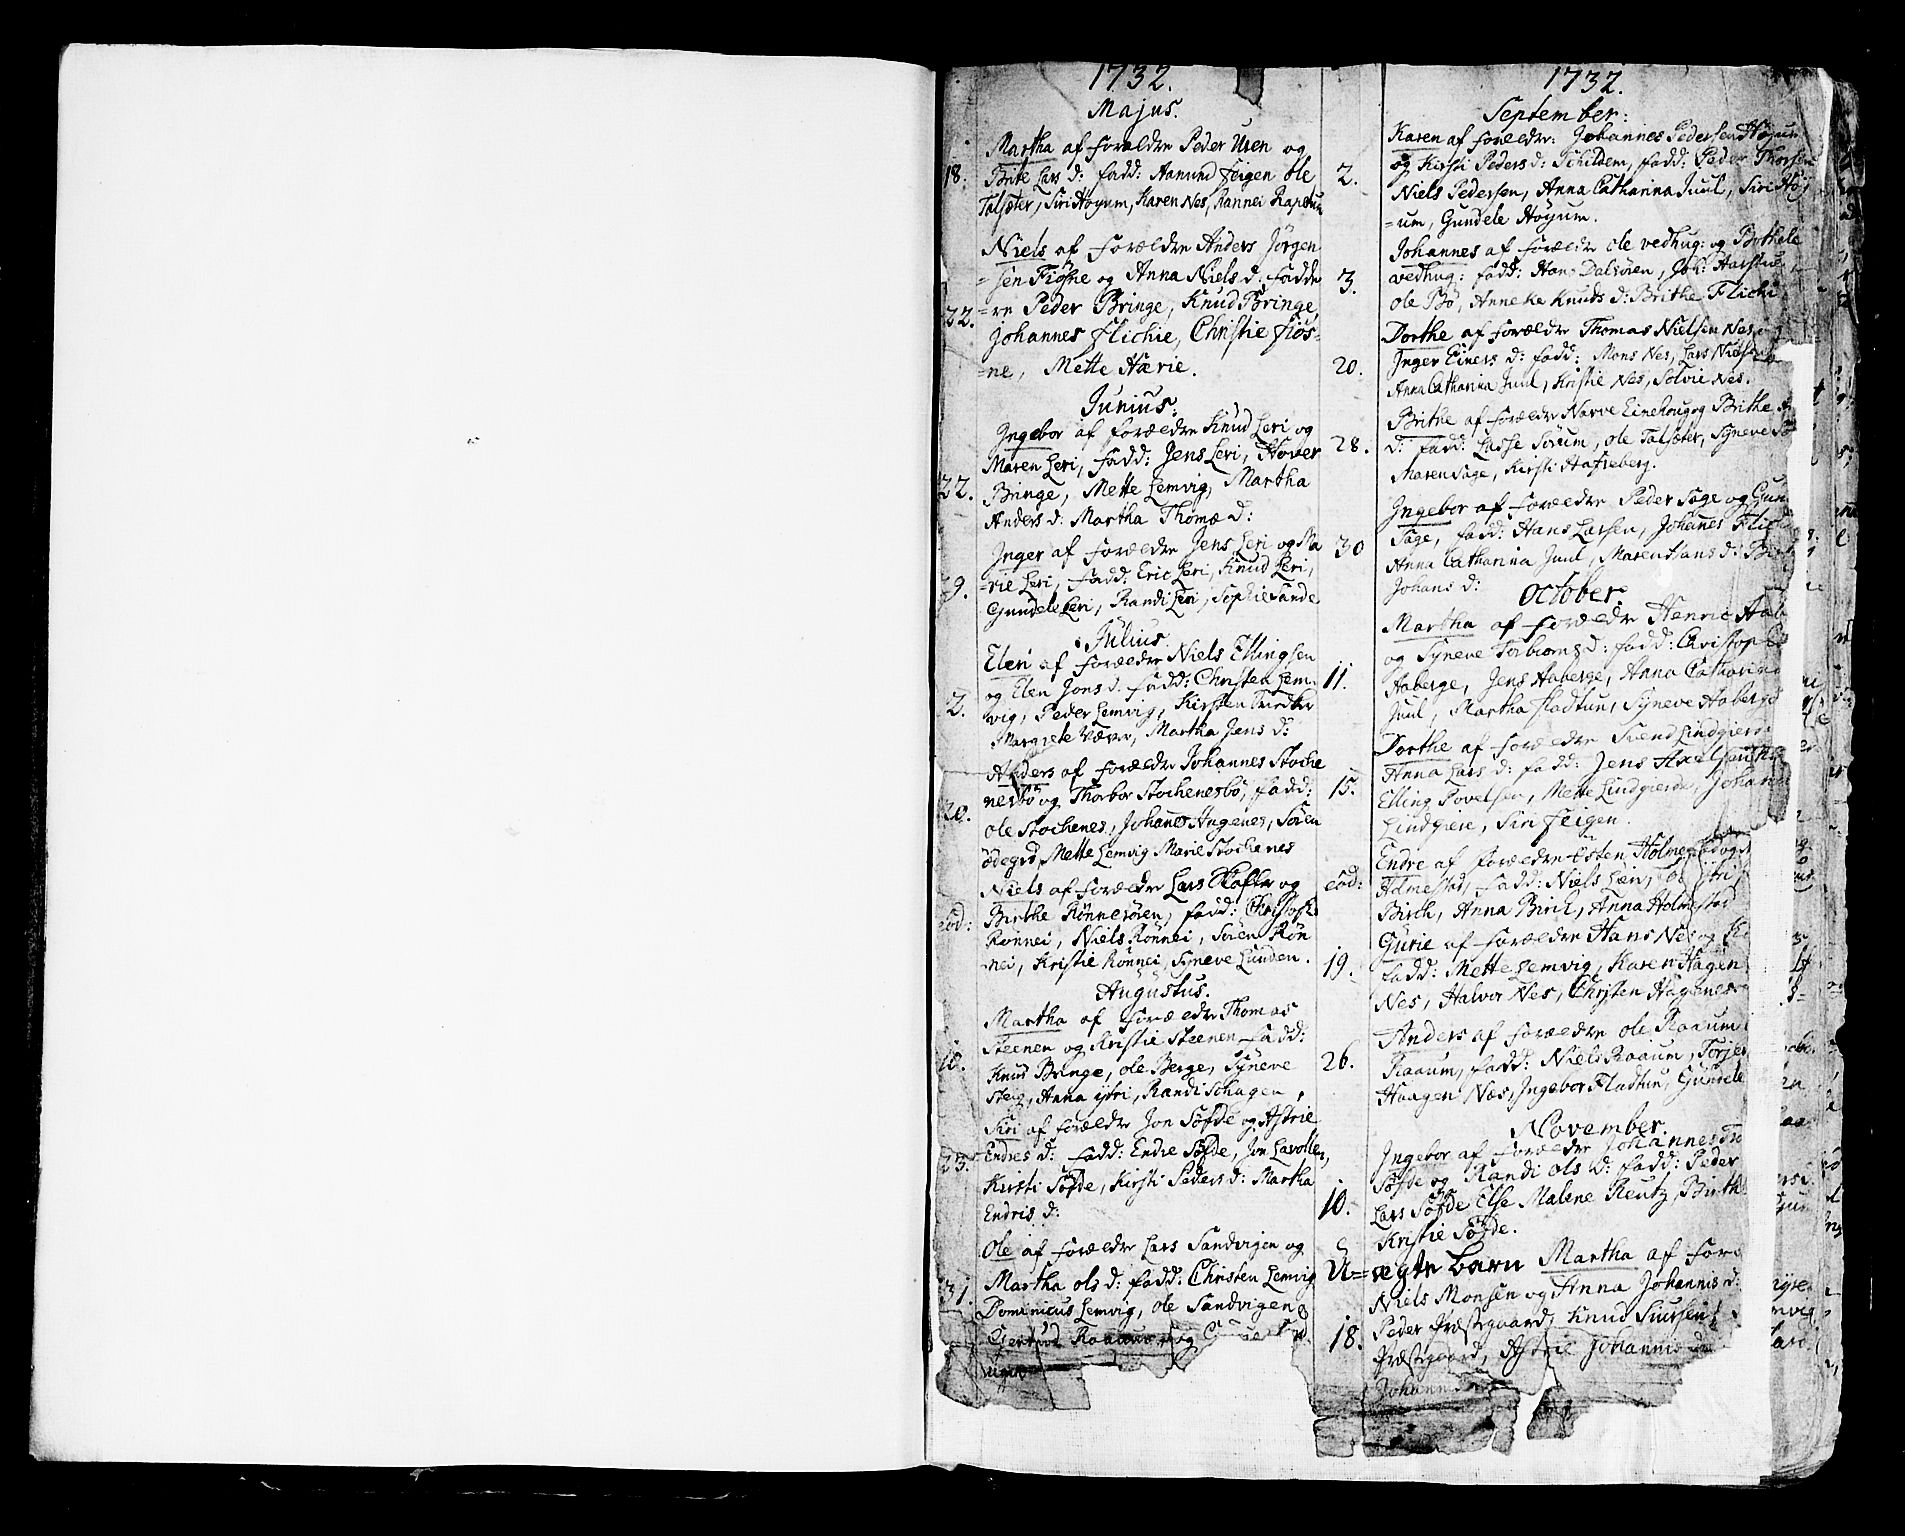 1732.
Majus.
Martha af forældre Peder Uren og
18. Brite Lars d: fadd: Aamund Feigen ole
Talsæter, Siri Høyum, Karen Nes, Rannei
Niels af forældre Anders Jörgen
=sen Fiösne og Anna Niels d: fadde
22. =re Peder Bringe, Knud Bringe,
Johannes Flichie, Christie Fiös=
=ne, Mette Hærie.
Junius.
Ingebor af forældre Knud Leri og
Maren Leri, fadd: Jens Leri, Hover
22. Bringe, Mette Lemvig, Martha
Anders d: Martha Thomæ d:
Inger af forældre Jens Leri og Ma
29. =rie Leri, fadd: Eric Leri, Knud Leri,
Gundele Leri, Randi Leri, Sophie Sande
Julius.
Eleri af forældre Niels Ellingsen
og Elen Jons d. fadd: Christen Lem=
2. vig, Peder Lemvig, Kirsten
Margrete Væver, Martha Jens d:
Anders af forældre Johannes Stoche
nesbö og Thorbor Stochenesbö, fadd:
20. ole Stochenes, Johanes Augenes, Sören
ödegrd, Mette Lemvig Marie Stochenes
Niels af forældre Lars Skafler og
eod: Birthe Rönnesören, fadd: Christoph
Rönnei, Niels Rönnei, Sören Rön
=nei, Kristie Rönnei, Syneve Lunden.
Augustus.
Martha af forældre Thomas
Steenen og Kristie Steenen fadd:
10. Knud Bringe, ole Berge, Syneve
Steig, Anna ijtri, Randi Schagen,
Siri af forældre Jon Söfde og Astrie
25. Endres d: fadd: Endre Söfde, Jon Lavollen,
Kirsti Söfde, Kirsti Peders d: Martha
Endris d:
Ole af forældre Lars Sandvigen og
31. Martha ols d: fadd: Christen Lemvig
Dominicus Lemvig, ole Sandvigen
Gertrud Raaum og
1732.
September:
Karen af foreldre: Johannes Pedersen Høyum
2. og Kirsti Peders d: Schildem, fadd: Peder Thorsen
Niels Pedersen, Anna Catharina Juul, Siri Høÿ
=um, Gundele Høyum.
Johannes af forældre ole vedhug: og Bothele
3. vedhug: fadd: Hans Dalsören, Joh: Harstie,
ole Bö, Anneke Knuds d: Brithe Flichi
Dorthe af forældre Thomas Nielsen Nes, og
20. Inger Einers d: fadd: Mons Nes, Lars Nielsen
Anna Catharina Juul, Kristie Nes, Solvie Nes.
Brithe af forældre Narve Einehoug og Brithe
28. d: fadd: Lasse Sørum, ole Talsæter, Syneve
Maren Soge, Kirsti Hafseberg.
Ingebor af forældre Peder Soge og Gun
30 Soge, fadd: Hans Larsen, Johanes Flichi
Anna Catharina Juul, Maren Hans d:
Johans d:
October.
Martha af forældre Henric Aab
og Syneve Torbiorns d: fadd: Christop
11. Aaberge, Jens Aaberge, Anna Catharina
Juul, Martha Fladtun, Syneve Aaberge
Dorthe af forældre Svend Lindgierd
15. Anna Lars d: fadd: Jens
Elling Povelsen, Mette Lindgierde, Johan
Lindgiere, Siri Feigen.
Endre af forældre östen Holmestad og
eod: Holmestad, fadd: Niels Leri,
Birch, Anna Birch, Anna Holmestad
Gurie af forældre Hans Nes og
19. fadd: Mette Lemvig, Karen Hagen
Nes, Halvor Nes, Christen Hagenes
Anders af forældre ole Raaum
26. Raaum, fadd: Niels Raaum, Torjer
Haagen Næs, Ingebor Fladtun, Gundele
November.
Ingebor af forældre Johannes
Söfde og Randi ols d: fadd: Peder
10. Lars Söfde Else Malene Reutz, Birth
Kristie Söfde.
U=ægte barn Martha af for
Niels Monsen og Anna Johannis d:
18. Peder Præstgaard, Knud Siursen
Præstgaard, Astrie Johannis
Johann